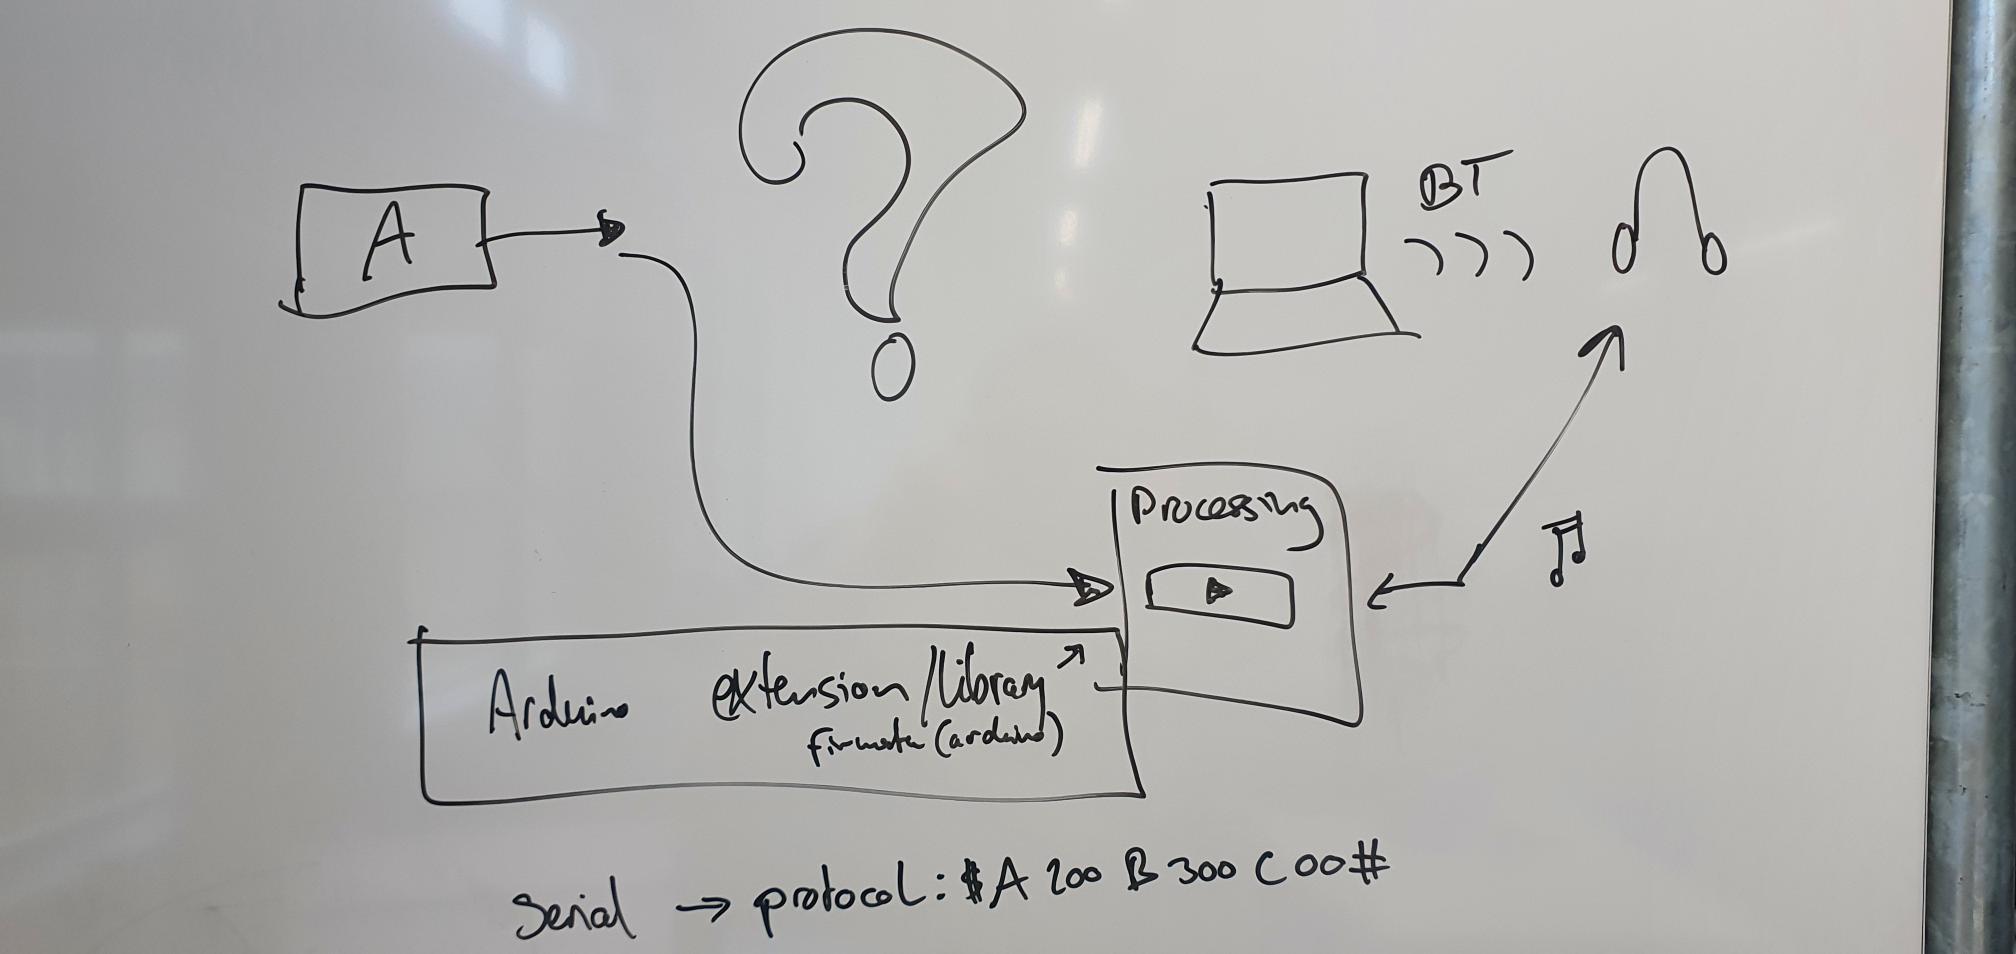 A
BT
Processing
Arduino extension/library
firmata (arduino)
Serial → protocol: $A 200 B 300 C 00#